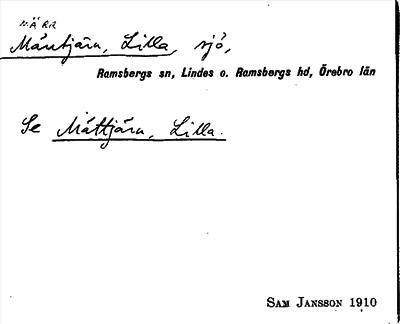 NÄRR
Märrtjärn, Lilla, sjö,
Ramsbergs sn, Lindes o. Ramsbergs hd, Örebro län
Se Mättjärn, Lilla.
SAM JANSSON 1910